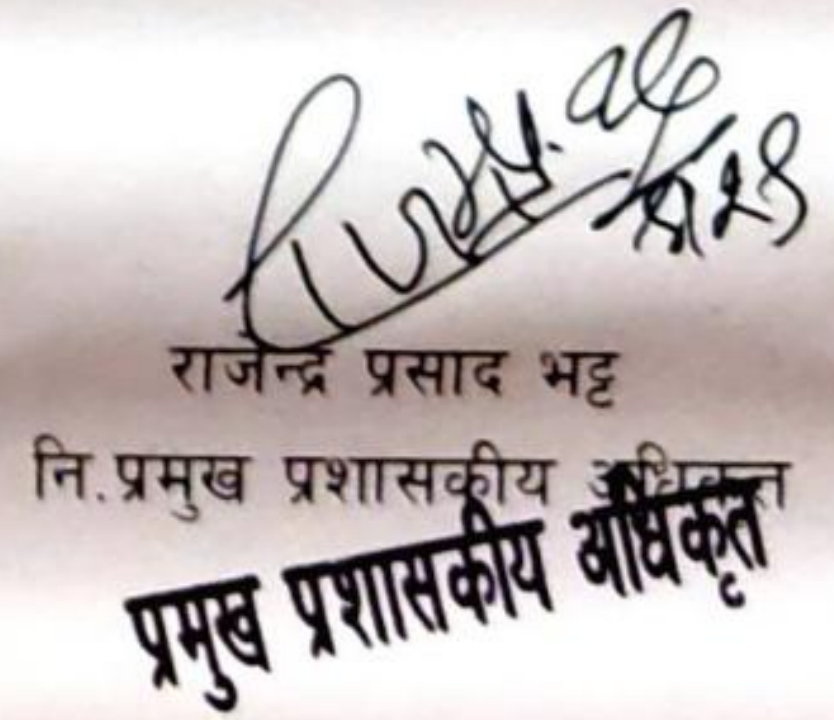 राजेन्द्र प्रसाद भट्ट
नि.प्रमुख प्रशासकीय अधिकृत
प्रमुख प्रशासकीय अधिकृत